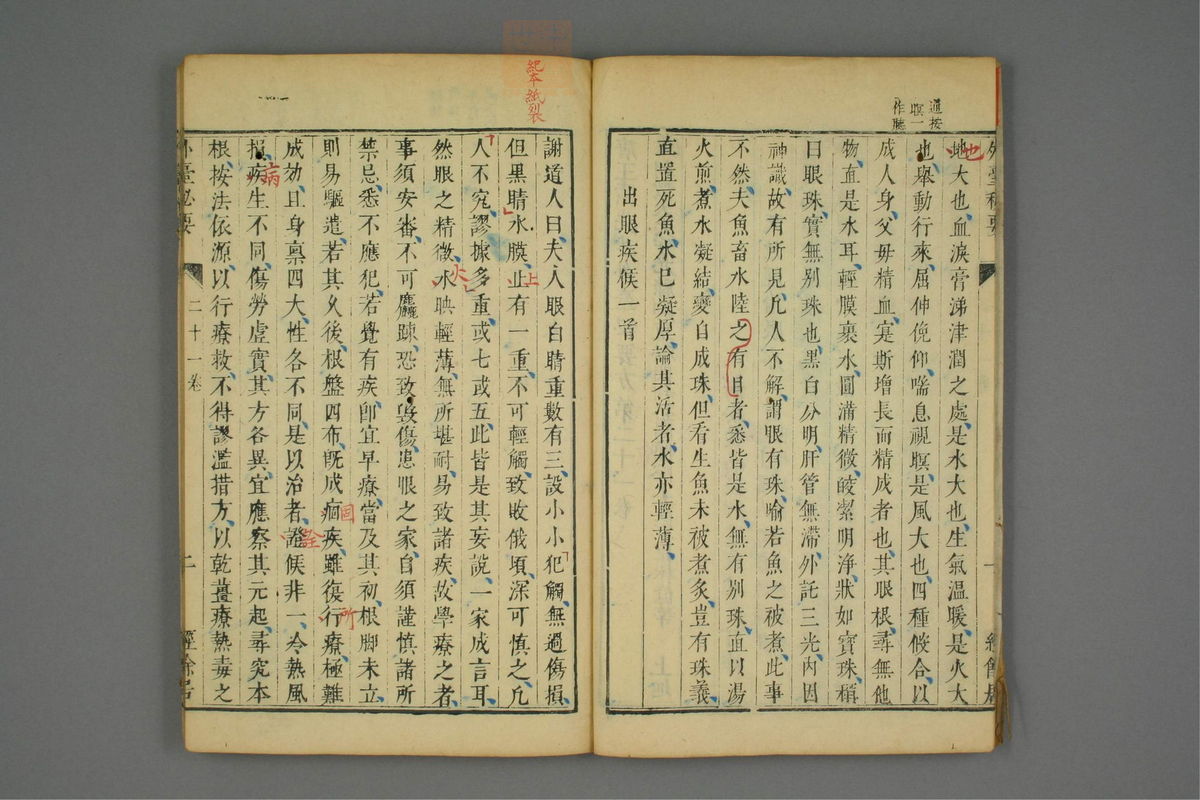 通按
瞑一
作聽
外臺秘要
一
經餘居
地
地大也血淚膏涕津潤之處是水大也生氣溫暖是火大
也舉動行來屈伸俛仰喘息視瞑是風大也四種假合以
成人身父母精血寔斯增長而精成者也其眼根尋無他
物直是水耳輕膜裹水圓滿精微皎潔明淨狀如寶珠稱
曰眼珠實無別珠也黑白分明肝管無滯外託三光內因
神識故有所見凡人不解謂眼有珠喻若魚之被煮此事
不然夫魚畜水陸之有目者悉皆是水無有別珠直以湯
火煎煮水凝結變自成珠但看生魚未被煮炙豈有珠義
直置死魚水已凝厚論其活者水亦輕薄
出眼疾候一首
紀本紙裂
謝道人曰夫入眼白睛重數有三設小小犯觸無過傷損
但黑睛水膜止有一重不可輕觸致敗俄頃深可慎之凡
上
人不究謬據多重或七或五此皆是其妄說一家成言耳
然眼之精微水映輕薄無所堪耐易致諸疾故學療之者
火
事須安審不可麤踈恐致毀傷患眼之家自須謹慎諸所
禁忌悉不應犯若覺有疾卽宜早療當及其初根脚未立
則易驅遣若其久後根盤四布旣成痼疾雖復行療極難
固
所
成効且身禀四大性各不同是以治者證候非一冷熱風
詮
損疾生不同傷勞虛實其方各異宜應察其元起尋究本
病
根按法依源以行療救不得謬濫措方以乾薑療熱毒之
外臺秘要
二十一卷
二
經餘居